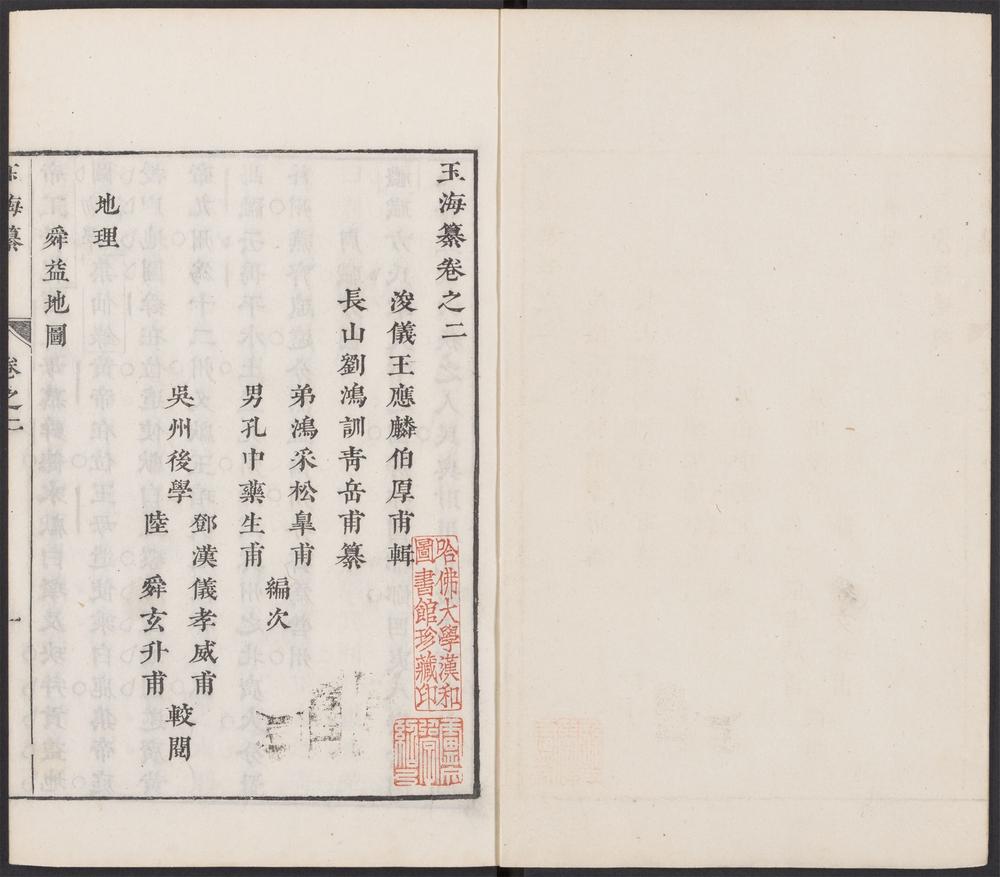 玉海纂卷之二
浚儀王應麟伯厚甫輯
長山劉鴻訓青岳甫纂
弟鴻采松皐甫
男孔中藥生甫
編次
吳州後學
鄧漢儀孝威甫
陸舜玄升甫
較閱
地理
舜益地圖
玉海纂
卷之二
一
哈佛大學漢和
圖書館珍藏印